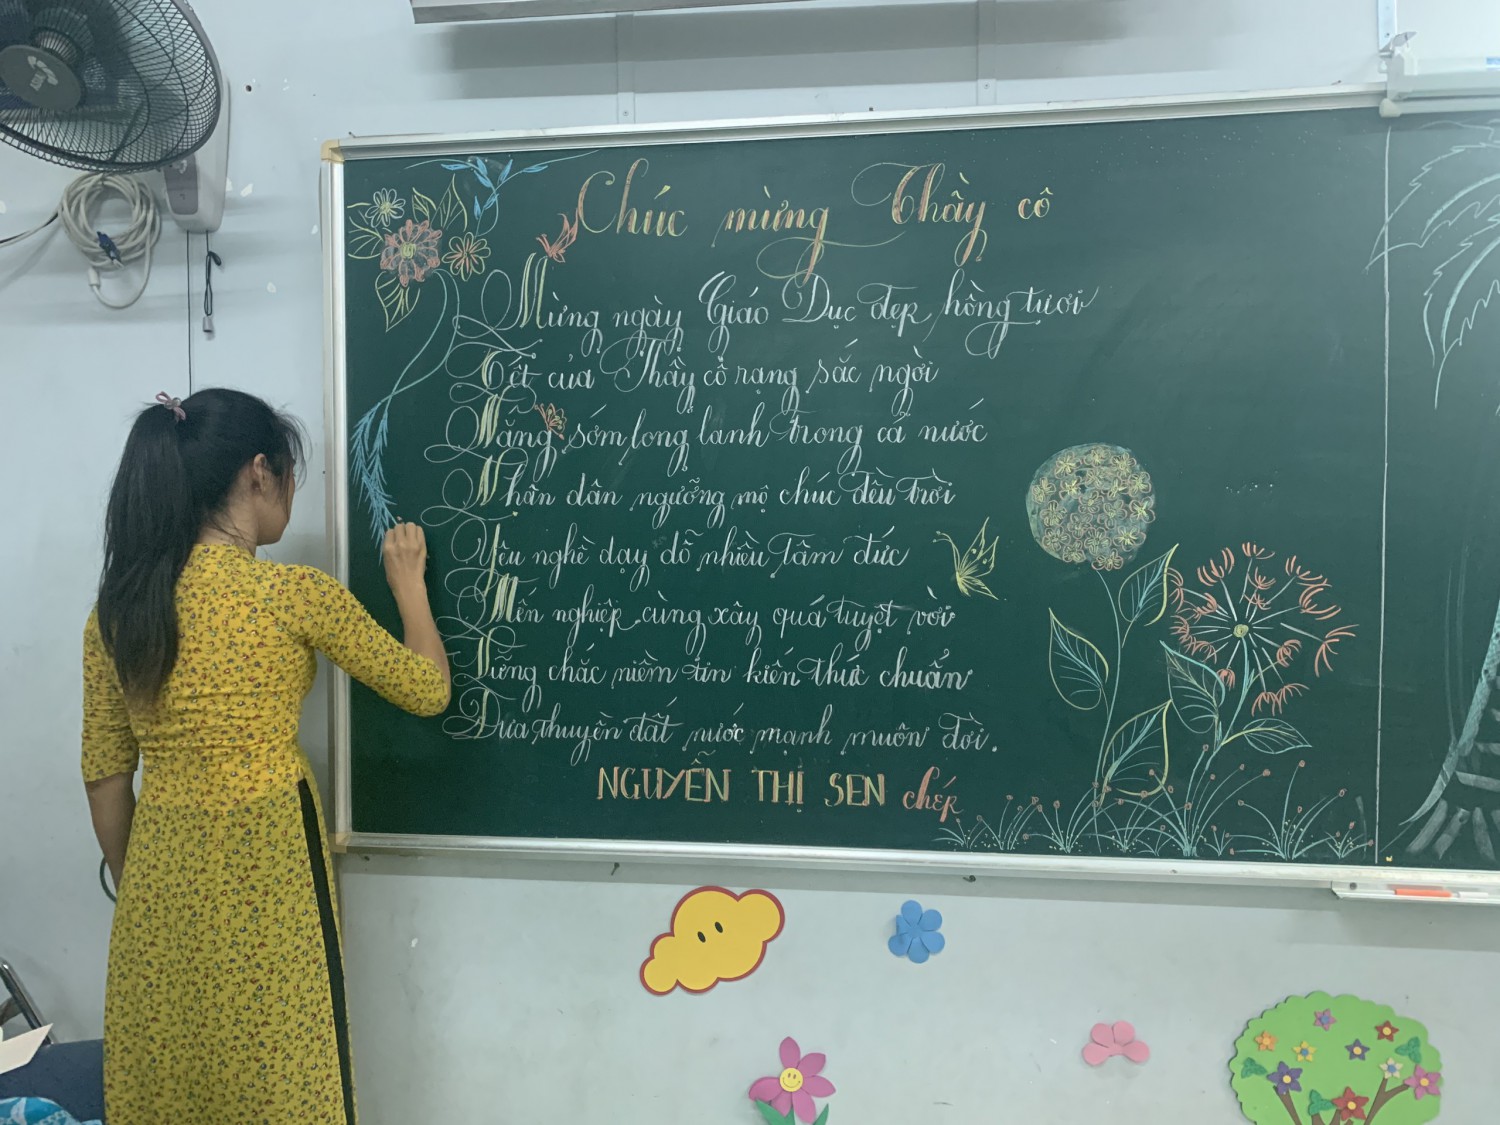 Chúc mừng Thầy cô
Mừng ngày Giáo Dục đẹp hồng tươi
Tết của Thầy cô rạng sắc ngời
Nắng sớm long lanh trong cả nước
Nhân dân ngưỡng mộ chúc đều trời
Yêu nghề dạy dỗ nhiều tâm đức
Mến nghiệp cùng xây quá tuyệt vời
Từng chắc niềm tin kiến thức chuẩn
Đưa thuyền đất nước mạnh muôn đời.
NGUYỄN THỊ SEN chép